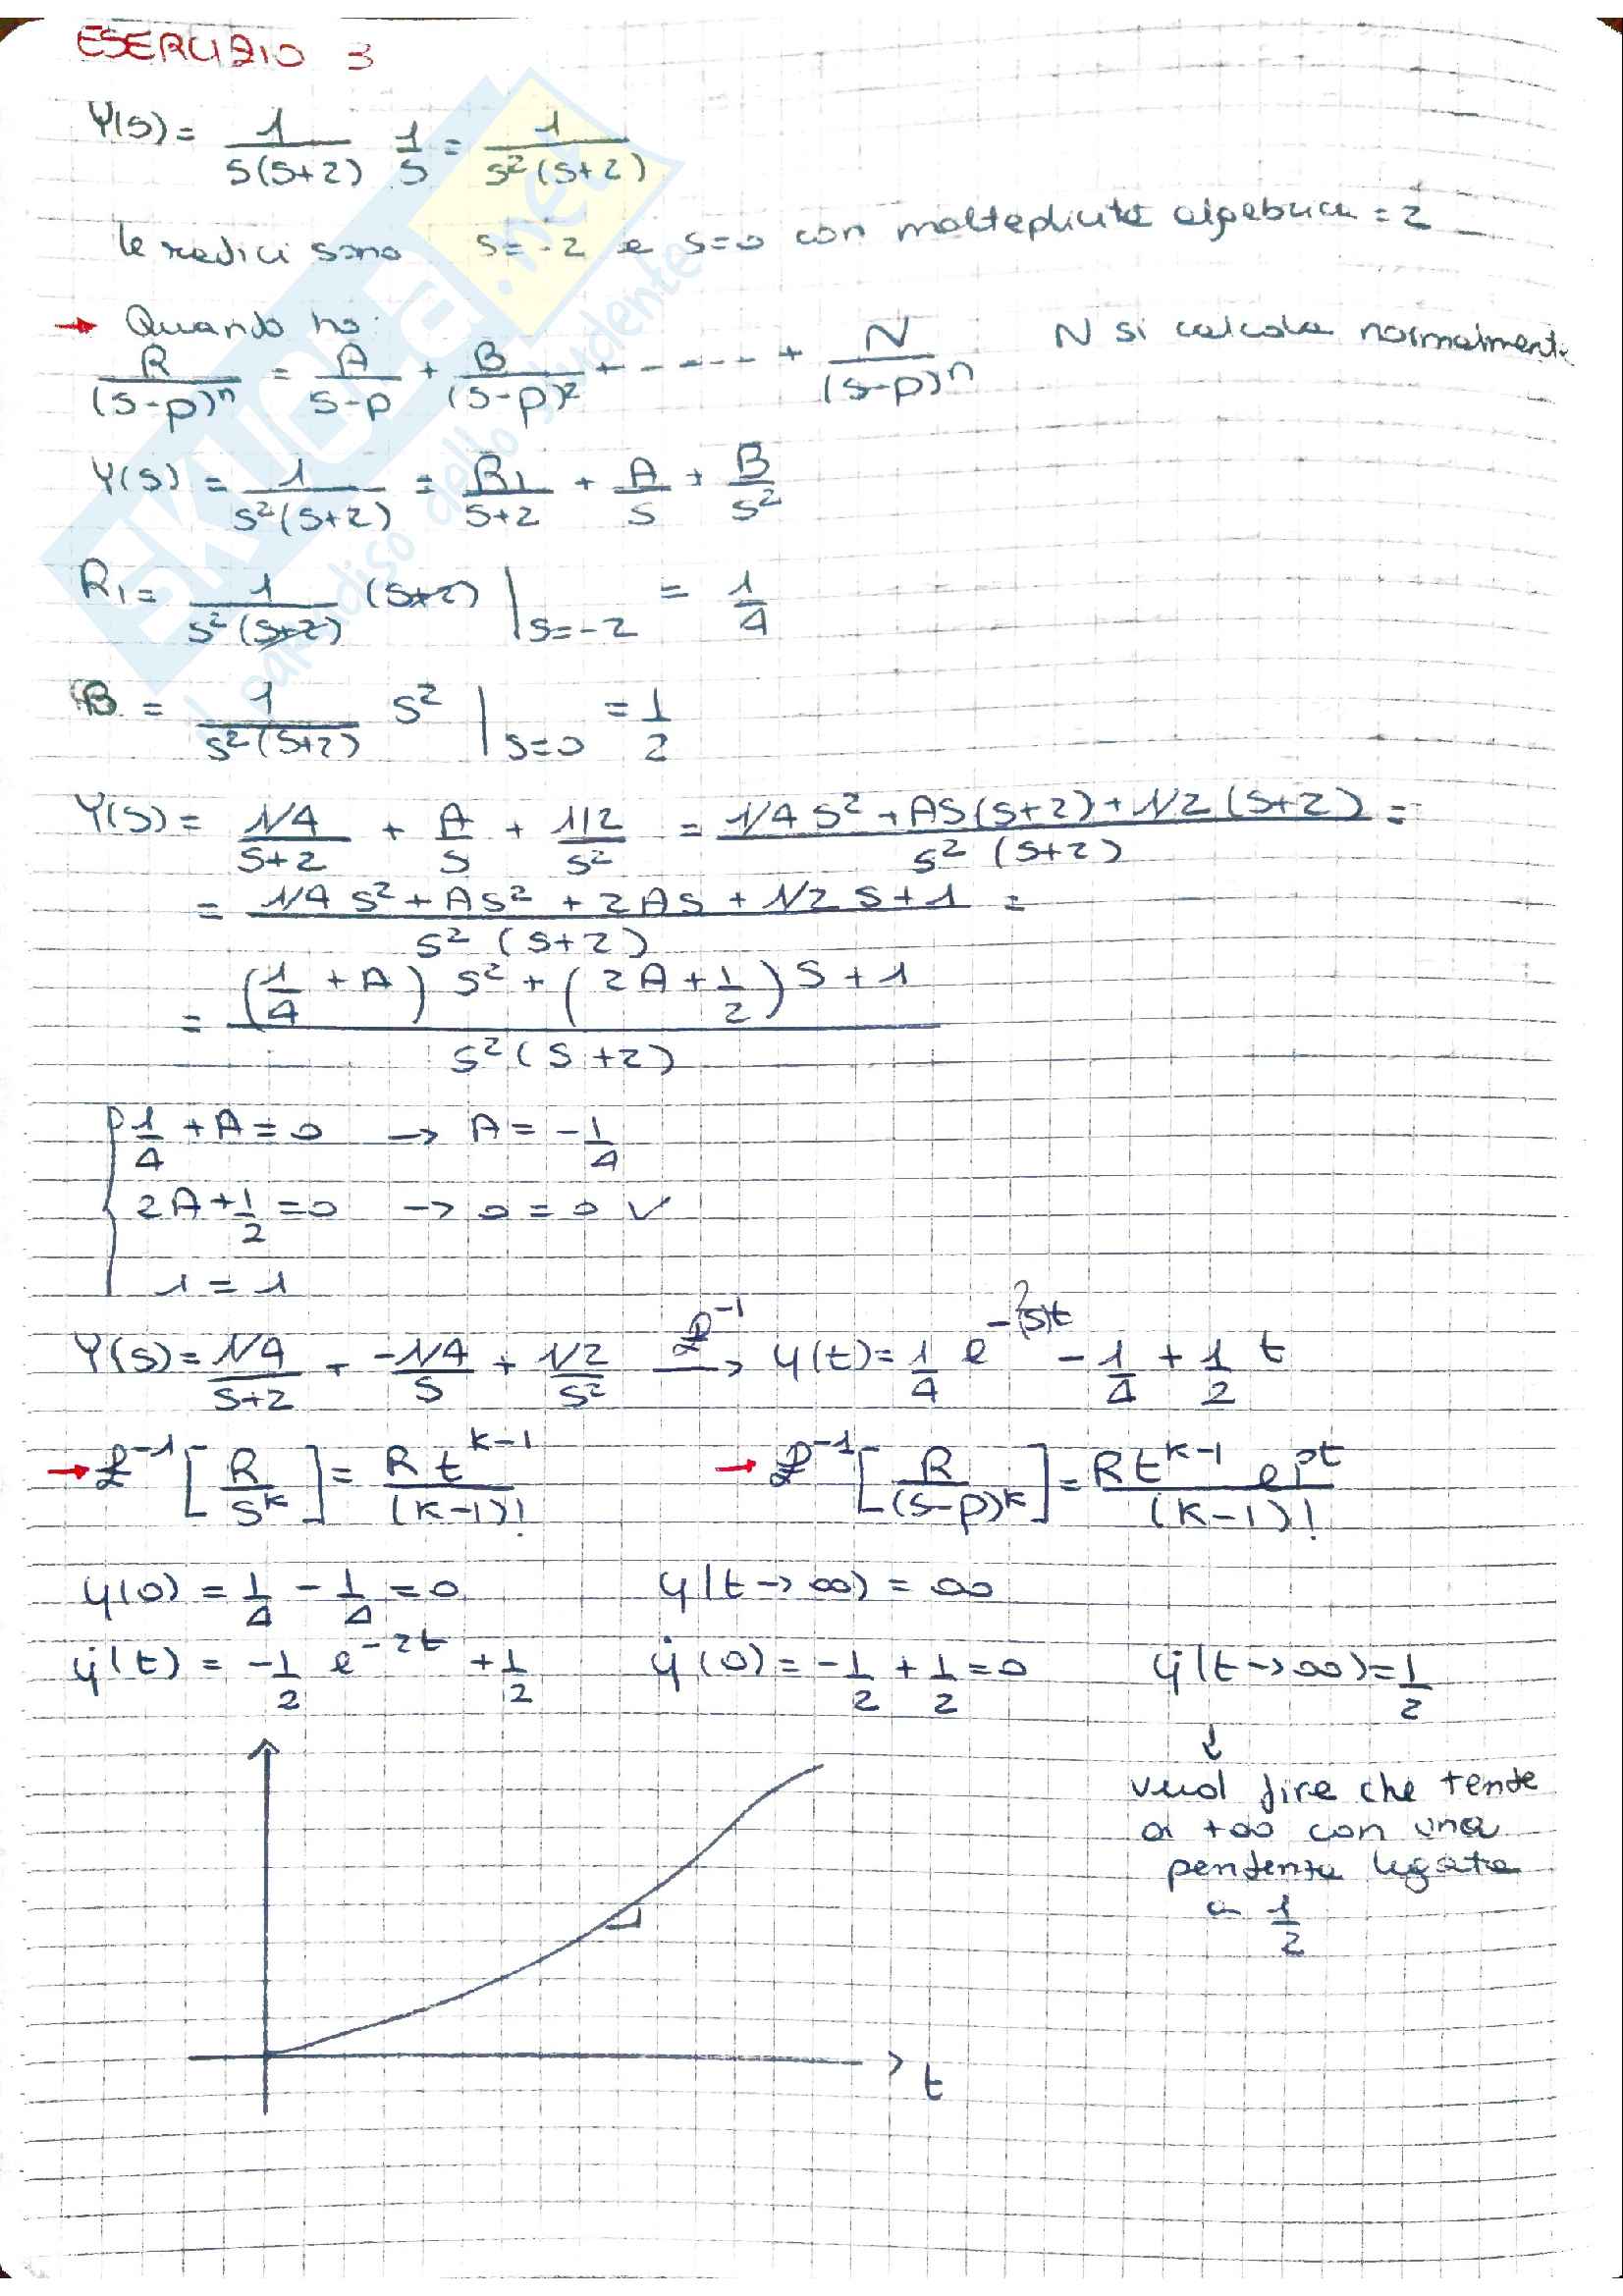 ESERCIZIO 3
Y(s) = 1/(s(s+2)) 1/s = 1/(s²(s+2))
le radici sono s=-2 e s=0 con molteplicità algebrica = 2
→ Quando ho:
R/(s-p)ⁿ = A/(s-p) + B/(s-p)² + ----- + N/(s-p)ⁿ N si calcola normalmente
Y(s) = 1/(s²(s+2)) = R₁/(s+2) + A/s + B/s²
R₁ = 1/(s²(s+2)) (s+2) |s=-2 = 1/4
B = 1/(s²(s+2)) s² |s=0 = 1/2
Y(s) = (1/4)/(s+2) + A/s + (1/2)/s² = (1/4 s² + As(s+2) + 1/2 (s+2))/(s²(s+2)) =
= (1/4 s² + As² + 2As + 1/2 s + 1)/(s²(s+2)) =
= ((1/4 + A) s² + (2A + 1/2) s + 1)/(s²(s+2))
1/4 + A = 0 → A = -1/4
2A + 1/2 = 0 → 0 = 0 ✓
1 = 1
Y(s) = (1/4)/(s+2) + (-1/4)/s + (1/2)/s² ℒ⁻¹→ y(t) = 1/4 e - 1/4 + 1/2 t
→ ℒ⁻¹[R/s^k] = R t^(k-1)/(k-1)! → ℒ⁻¹[R/(s-p)^k] = R t^(k-1) e^(pt)/(k-1)!
y(0) = 1/4 - 1/4 = 0 y(t→∞) = ∞
ẏ(t) = -1/2 e^(-2t) + 1/2 ẏ(0) = -1/2 + 1/2 = 0 ẏ(t→∞) = 1/2
↓
vuol dire che tende
a +∞ con una
pendenza legata
a 1/2
t
SKUOLA.net
il paradiso dello studente